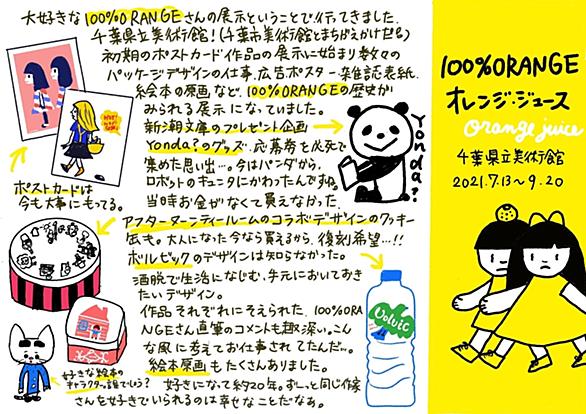 大好きな100%ORANGEさんの展示ということで行ってきました。
千葉県立美術館!(千葉市美術館とまちがえかけた💦)
初期のポストカード作品の展示に始まり数々の
パッケージデザインの仕事、広告ポスター、雑誌表紙、
絵本の原画など、100%ORANGEの歴史が
みられる展示になっていました。
新潮文庫のプレゼント企画
Yonda?のグッズ、応募券を必死で
集めた思い出…。今はパンダから、
ロボットのキュンタにかわったんですね。
当時お金がなくて買えなかった、
アフタヌーンティールームのコラボデザインのクッキー
缶も。大人になった今なら買えるから、復刻希望…!!
ボルビックのデザインは知らなかった。
洒脱で生活になじむ、手元においておき
たいデザイン。
作品それぞれにそえられた、100%ORA
NGEさん直筆のコメントも趣深い。こん
な風に考えてお仕事されてたんだ…。
絵本原画もたくさんありました。
好きになって約20年。ずーっと同じ作家
さんを好きでいられるのは幸せなことだなぁ。
ポストカードは
今も大事にもってる。
好きな絵本の
キャラクター。誰でしょう?
Yonda?
Volvic
100%ORANGE
オレンジ・ジュース
orange juice
千葉県立美術館
2021.7.13〜9.20